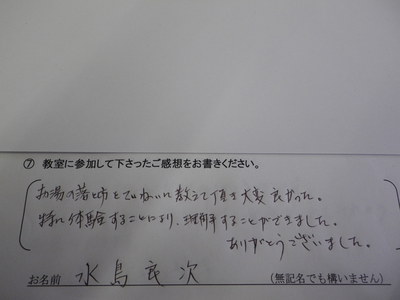 ⑦ 教室に参加して下さったご感想をお書きください。
お湯の落し方をていねいに教えて頂き大変良かった。
特に体験することにより、理解することができました。
ありがとうございました。
お名前 水島良次 (無記名でも構いません)